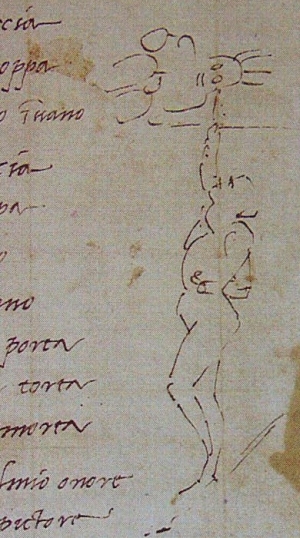 ccia
oppa
o i͠vano
cia
pa
o
ano
porta
torta
morta
l mio onore
pictore